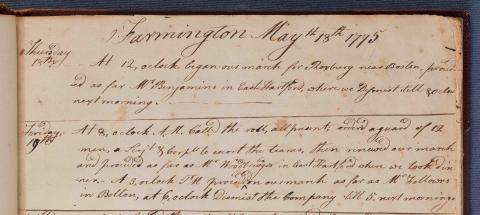 Farmington May th 18th 1775
Thursday
18th
At 12, oClock began our march for Roxbury near Boston, proceed
ed as far Mr Benjamins in East Hartford, where we Dismist till 8 oClock
next morning.
Friday
19th
At 8, oClock A.M. Call'd the roll, all present, order'd a guard of 12
men, a Serjt & Corpl to escort the teams, then renewed our march
and proceed as far as Mr Woodbridges in East Hartford where we took din
ner. At 3, oClock P.M. proceed'd on our march as far as Mr Fellows
in Bolton, at 6, oClock Dismist the Company till 5, next morning